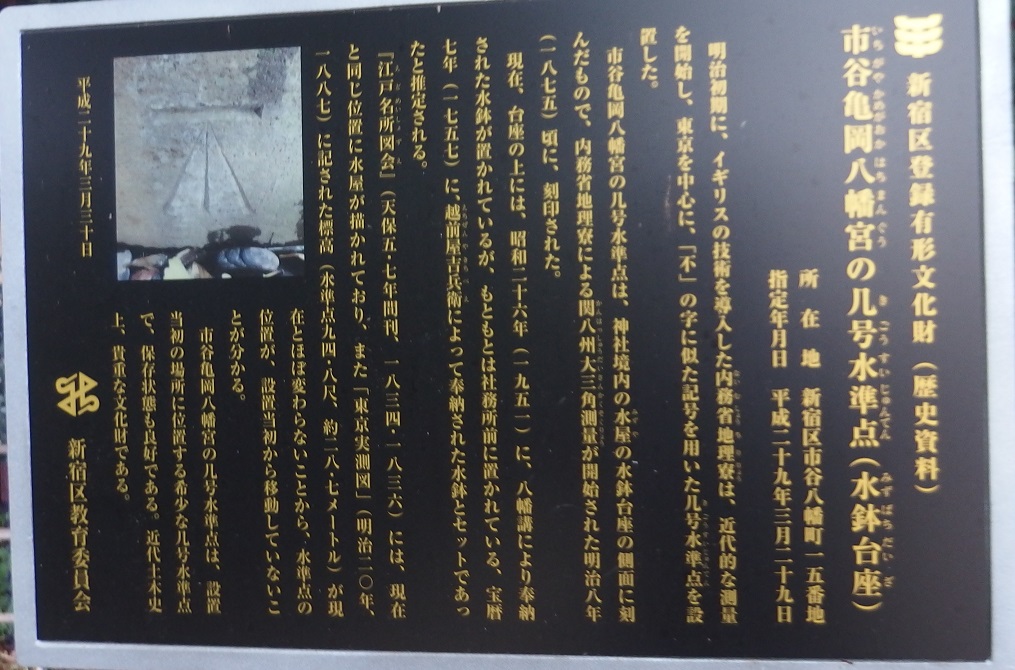 新宿区登録有形文化財（歴史資料）
市谷亀岡八幡宮の几号水準点（水鉢台座）
所在地　新宿区市谷八幡町一五番地
指定年月日　平成二十九年三月二十九日
明治初期に、イギリスの技術を導入した内務省地理寮は、近代的な測量
を開始し、東京を中心に、「不」の字に似た記号を用いた几号水準点を設
置した。
市谷亀岡八幡宮の几号水準点は、神社境内の水屋の水鉢台座の側面に刻
んだもので、内務省地理寮による関八州大三角測量が開始された明治八年
（一八七五）頃に、刻印された。
現在、台座の上には、昭和二十六年（一九五一）に、八幡講により奉納
された水鉢が置かれているが、もともとは社務所前に置かれている、宝暦
七年（一七五七）に、越前屋吉兵衛によって奉納された水鉢とセットであっ
たと推定される。
『江戸名所図会』（天保五・七年間刊、一八三四・一八三六）には、現在
と同じ位置に水屋が描かれており、また「東京実測図」（明治二〇年、
一八八七）に記された標高（水準点九四・八尺、約二八・七メートル）が現
在とほぼ変わらないことから、水準点の
位置が、設置当初から移動していないこ
とが分かる。
市谷亀岡八幡宮の几号水準点は、設置
当初の場所に位置する希少な几号水準点
で、保存状態も良好である。近代土木史
上、貴重な文化財である。
平成二十九年三月三十日
新宿区教育委員会